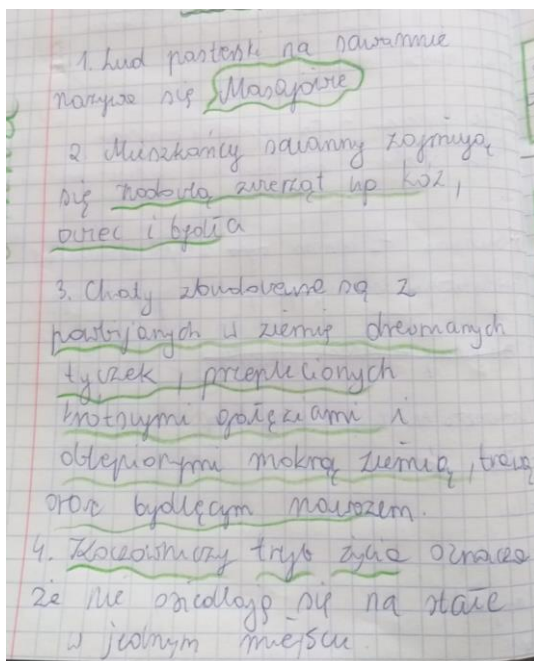 1. Lud pasterski na sawannie
nazywa się Masajowie
2 Mieszkańcy sawanny zajmują
się hodowlą zwierząt np kóz,
owiec i bydła
3. Chaty zbudowane są z
powbijanych w ziemię drewnianych
tyczek, przeplecionych
krótszymi gałęziami i
oblepionymi mokrą ziemią, trawą
oraz bydlęcym nawozem.
4. Koczowniczy tryb życia oznacza
że nie osiedlają się na stałe
w jednym miejscu.